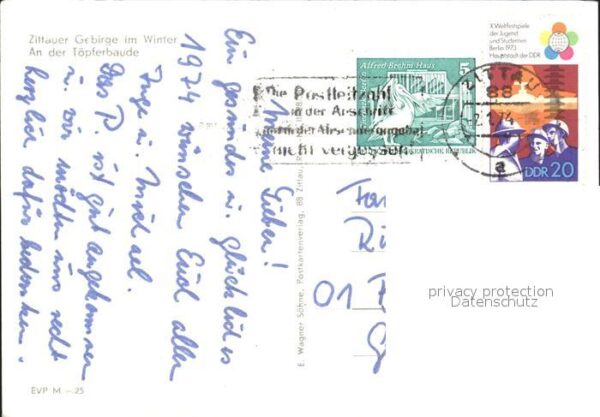 Zittauer Gebirge im Winter
An der Töpferbaude
Meine Lieben!
Ein gesundes u. glückliches
1974 wünschen Euch aller
Ingo u.
Das P. ist gut angekommen
u. wir möchten uns recht
herzlich dafür bedanken.
EVP M -.25
E. Wagner Söhne, Postkartenverlag, 88 Zittau,
Alfred Brehm Haus
5
Die Postleitzahl
in der Anschrift
und in der Absenderangabe
nicht vergessen
ZITTAU
88
2.1.74
a
X. Weltfestspiele
der Jugend
und Studenten
Berlin 1973
Hauptstadt der DDR
DDR 20
01
privacy protection
Datenschutz